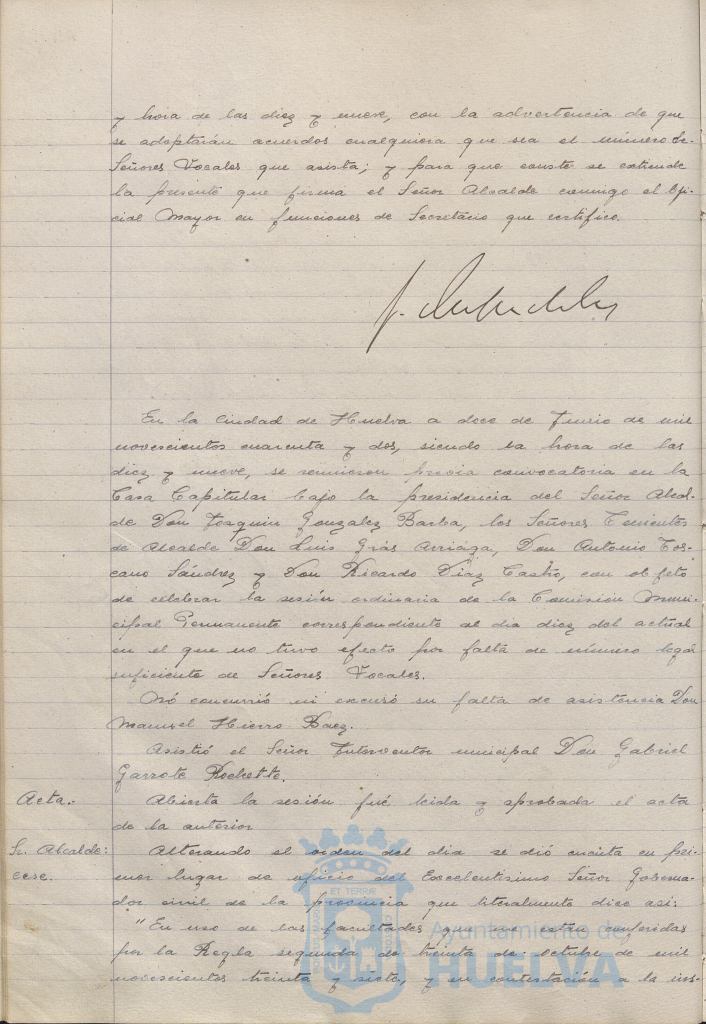 y hora de las diez y nueve, con la advertencia de que
se adoptarán acuerdos cualquiera que sea el número de
Señores Vocales que asista; y para que conste se extiende
la presente que firma el Señor Alcalde conmigo el Ofi-
cial Mayor en funciones de Secretario que certifico.
En la Ciudad de Huelva a doce de Junio de mil
novescientos cuarenta y dos, siendo la hora de las
diez y nueve, se reunieron previa convocatoria en la
Casa Capitular bajo la presidencia del Señor Alcal-
de Don Joaquin Gonzalez Barba, los Señores Tenientes
de Alcalde Don Luis Grás Arriaga, Don Antonio Tos-
cano Sández y Don Ricardo Diaz Castro, con objeto
de celebrar la sesión ordinaria de la Comisión Muni-
cipal Permanente correspondiente al dia diez del actual
en el que no tuvo efecto por falta de número legal
suficiente de Señores Vocales.
Nó concurrió ni excusó su falta de asistencia Don
Manuel Hierro Baez.
Asistió el Señor Interventor municipal Don Gabriel
Garrote Rochette.
Acta.- Abierta la sesión fué leida y aprobada el acta
de la anterior
Sr. Alcalde: Alterando el orden del dia se dió cuenta en pri-
cese. mer lugar de oficio del Excelentisimo Señor Goberna-
dor civil de la provincia que literalmente dice asi:
"En uso de las facultades que me estan conferidas
por la Regla segunda de treinta de octubre de mil
novescientos treinta y siete, y en contestación a la ins-
Ayuntamiento de
HUELVA